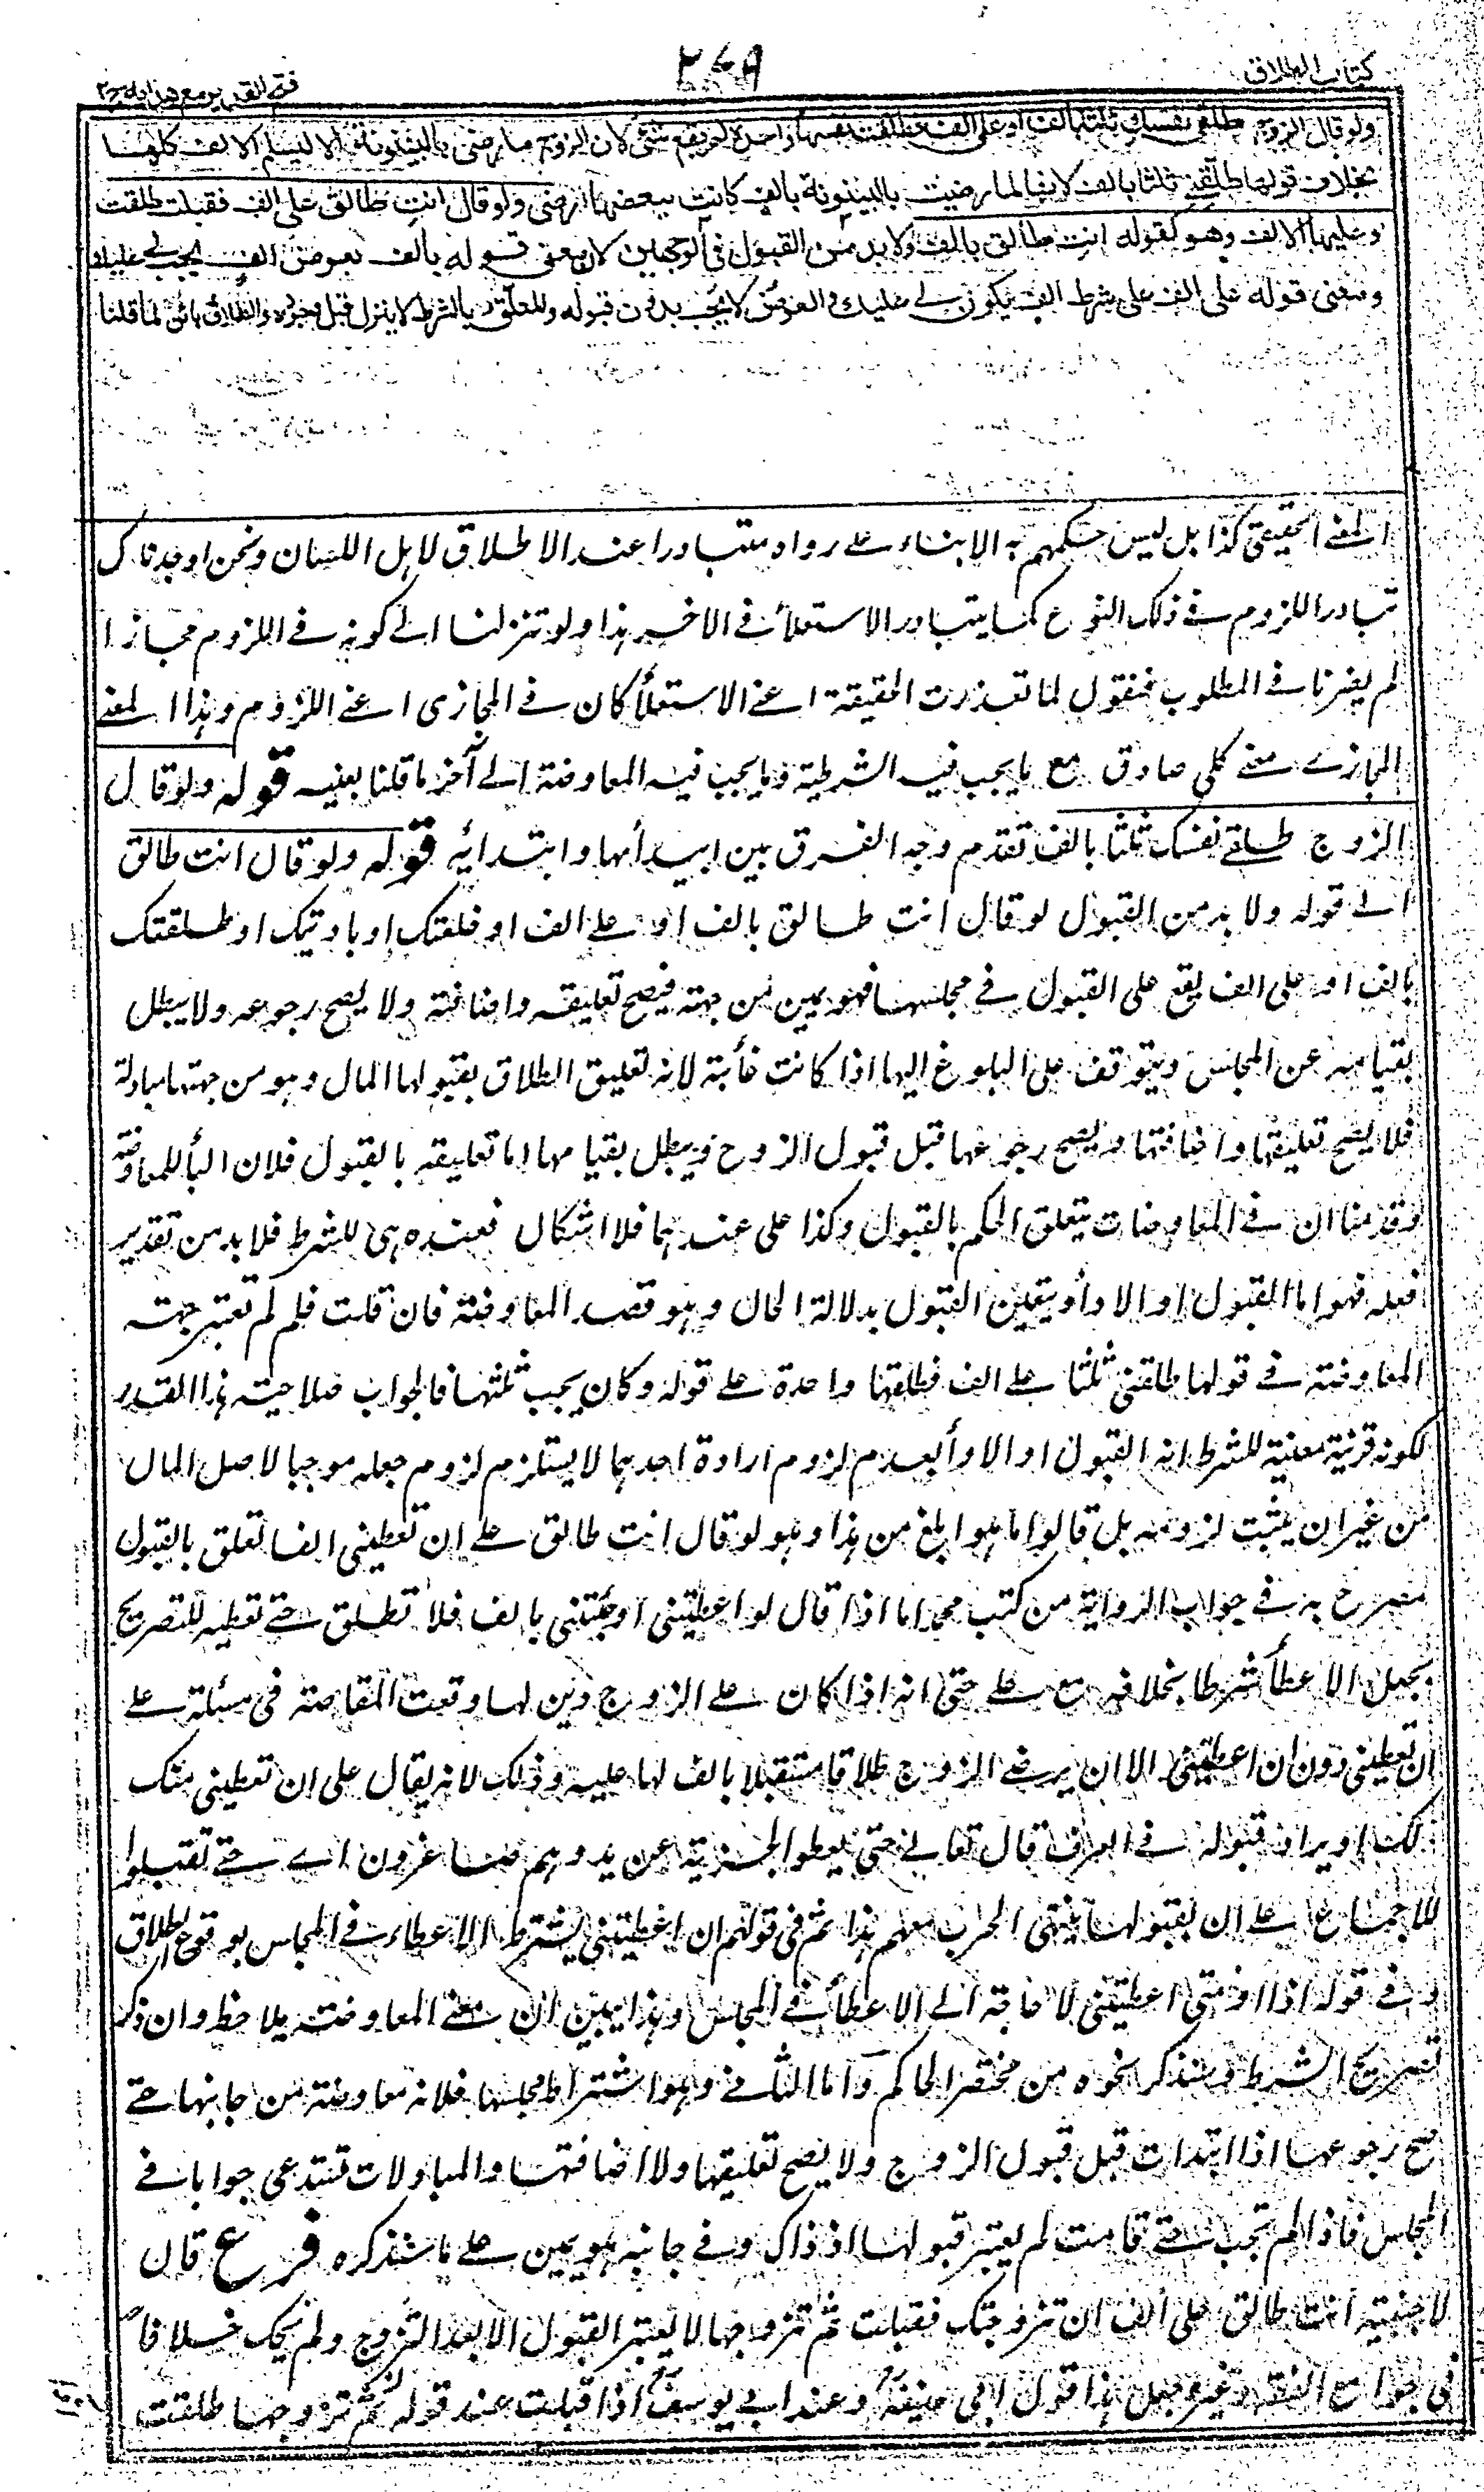 كتاب الطلاق
٢٧٩
فتح القدير مع هداية ج٢
ولو قال الزوج طلقي نفسك ثلثا بالف او على الف فطلقت نفسها واحدة لم يقع شئ لان الزوج ما رضى بالبينونة الا ليسلم الالف كلها
بخلاف قولها طلقني ثلثا بالف لانها لما رضيت بالبينونة بالف كانت ببعضها ارضى ولو قال انت طالق على الف فقبلت طلقت
وعليها الالف وهو كقوله انت طالق بالف ولا بد من القبول في الوجهين لان معنى قوله بالف بعوض الف يجب لي عليك
ومعنى قوله على الف على شرط الف يكون لي عليك والعوض لا يجب بدون قبوله والمعلق بالشرط لا ينزل قبل وجوده والطلاق بائن لما قلنا
المعنى الحقيقي كذا بل ليس حكمهم به الا بناء على رواه متبادرا عند الاطلاق لاهل اللسان ونحن اوجدناك
تبادر اللزوم في ذلك النوع كما يتبادر الاستعلاء في الاخير هذا ولو تنزلنا الى كونه في اللزوم مجازا
لم يضرنا في المطلوب فنقول لما تعذرت الحقيقة اعني الاستعلاء كان في المجازى اعنى اللزوم وهذا المعنى
المجازي معنى كلي صادق مع ما يجب فيه الشرطية وما يجب فيه المعاوضة الى آخر ما قلنا بعينه قوله ولو قال
الزوج طلقي نفسك ثلثا بالف تقدم وجه الفرق بين ابتدائها وابتدائه قوله ولو قال انت طالق
الى قوله ولا بد من القبول لو قال انت طالق بالف او على الف او خلعتك او بارئتك او طلقتك
بالف او على الف يقع على القبول في مجلسها فهو يمين من جهته فيصح تعليقه واضافته ولا يصح رجوعه ولا يبطل
بقيامه عن المجلس ويتوقف على البلوغ اليها اذا كانت غائبة لانه تعليق الطلاق بقبولها المال وهو من جهتها مبادلة
فلا يصح تعليقها واضافتها ويصح رجوعها قبل قبول الزوج ويبطل بقيامها اما تعليقه بالقبول فلان الباء للمعاوضة
وقدمنا ان في المعاوضات يتعلق الحكم بالقبول وكذا على عندهما فلا اشكال فعنده هى للشرط فلا بد من تقدير
فعله فهو اما القبول او الاداء ويتعين القبول بدلالة الحال وهو قصد المعاوضة فان قلت فلم لم تعتبر جهته
المعاوضة في قولها طلقني ثلثا على الف فطلقها واحدة على قوله وكان يجب ثلثها فالجواب صلاحيته هذا القدر
لكونه قرينة معينة للشرط انه القبول او الاداء بعدم لزوم ارادة احدهما لا يستلزم لزوم جعله موجبا لاصل المال
من غير ان يثبت لزومه بل قالوا ما هو ابلغ من هذا وهو لو قال انت طالق على ان تعطيني الفا تعلق بالقبول
مصرح به في جواب الرواية من كتب محمد اما اذا قال لو اعطيتني او جئتني بالف فلا تطلق حتى تعطيه للتصريح
بجعل الاعطاء شرطا بخلافه مع على حتى انه اذا كان على الزوج دين لها وقعت المقاصة في مسئلة على
ان تعطيني دون ان اعطيتني الا ان يرضى الزوج طلاقا مستقبلا بالف لها عليه وذلك لانه يقال على ان تعطيني منك
كذا ويراد قبوله في العرف قال تعالى حتى يعطوا الجزية عن يد وهم صاغرون اى حتى تقبلوا
للاجماع على ان بقبولها ينتهى الحرب معهم هذا ثم في قولهم ان اعطيتني يشترط الاعطاء في المجلس لوقوع الطلاق
وفي قوله اذا او متى اعطيتني لا حاجة الى الاعطاء في المجلس وهذا يبين ان معنى المعاوضة يلاحظ وان ذكر
تصريح الشرط وسنذكر نحوه من مختصر الحاكم واما الثاني وهو اشتراط مجلسها فلانه معاوضة من جانبها حتى
صح رجوعها اذا ابتدات قبل قبول الزوج ولا يصح تعليقها ولا اضافتها والمبادلات تستدعى جوابا في
المجلس فاذا لم تجب حتى قامت لم يعتبر قبولها اذ ذاك وفي جانبه هو يمين على ما سنذكره فرع قال
لاجنبية انت طالق على الف ان تزوجتك فقبلت ثم تزوجها لا يعتبر القبول الا بعد التزوج ولم يحك خلافا
في جوامع الفقه وغيره جعل هذا قول ابي حنيفة وعند ابي يوسف اذا قبلت عند قوله ثم تزوجها طلقت